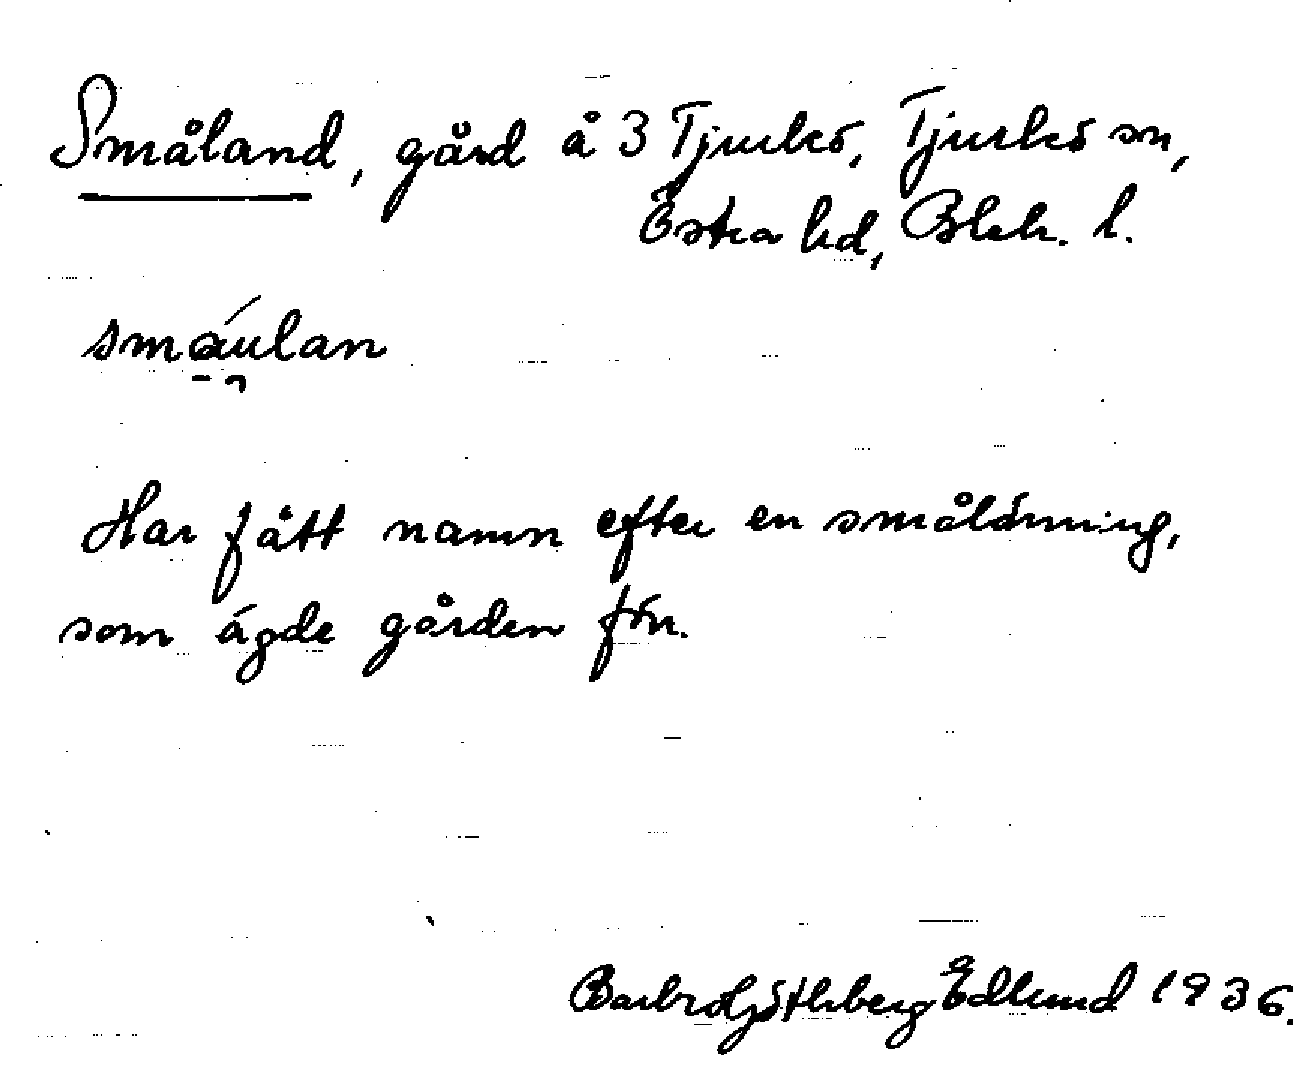 Småland, gård å 3 Tjurkö, Tjurkö sn,
Östra hd, Blek. l.
smáulan
Har fått namn efter en smålänning,
som ägde gården förr.
Barbro Götheberg Edlund 1936.